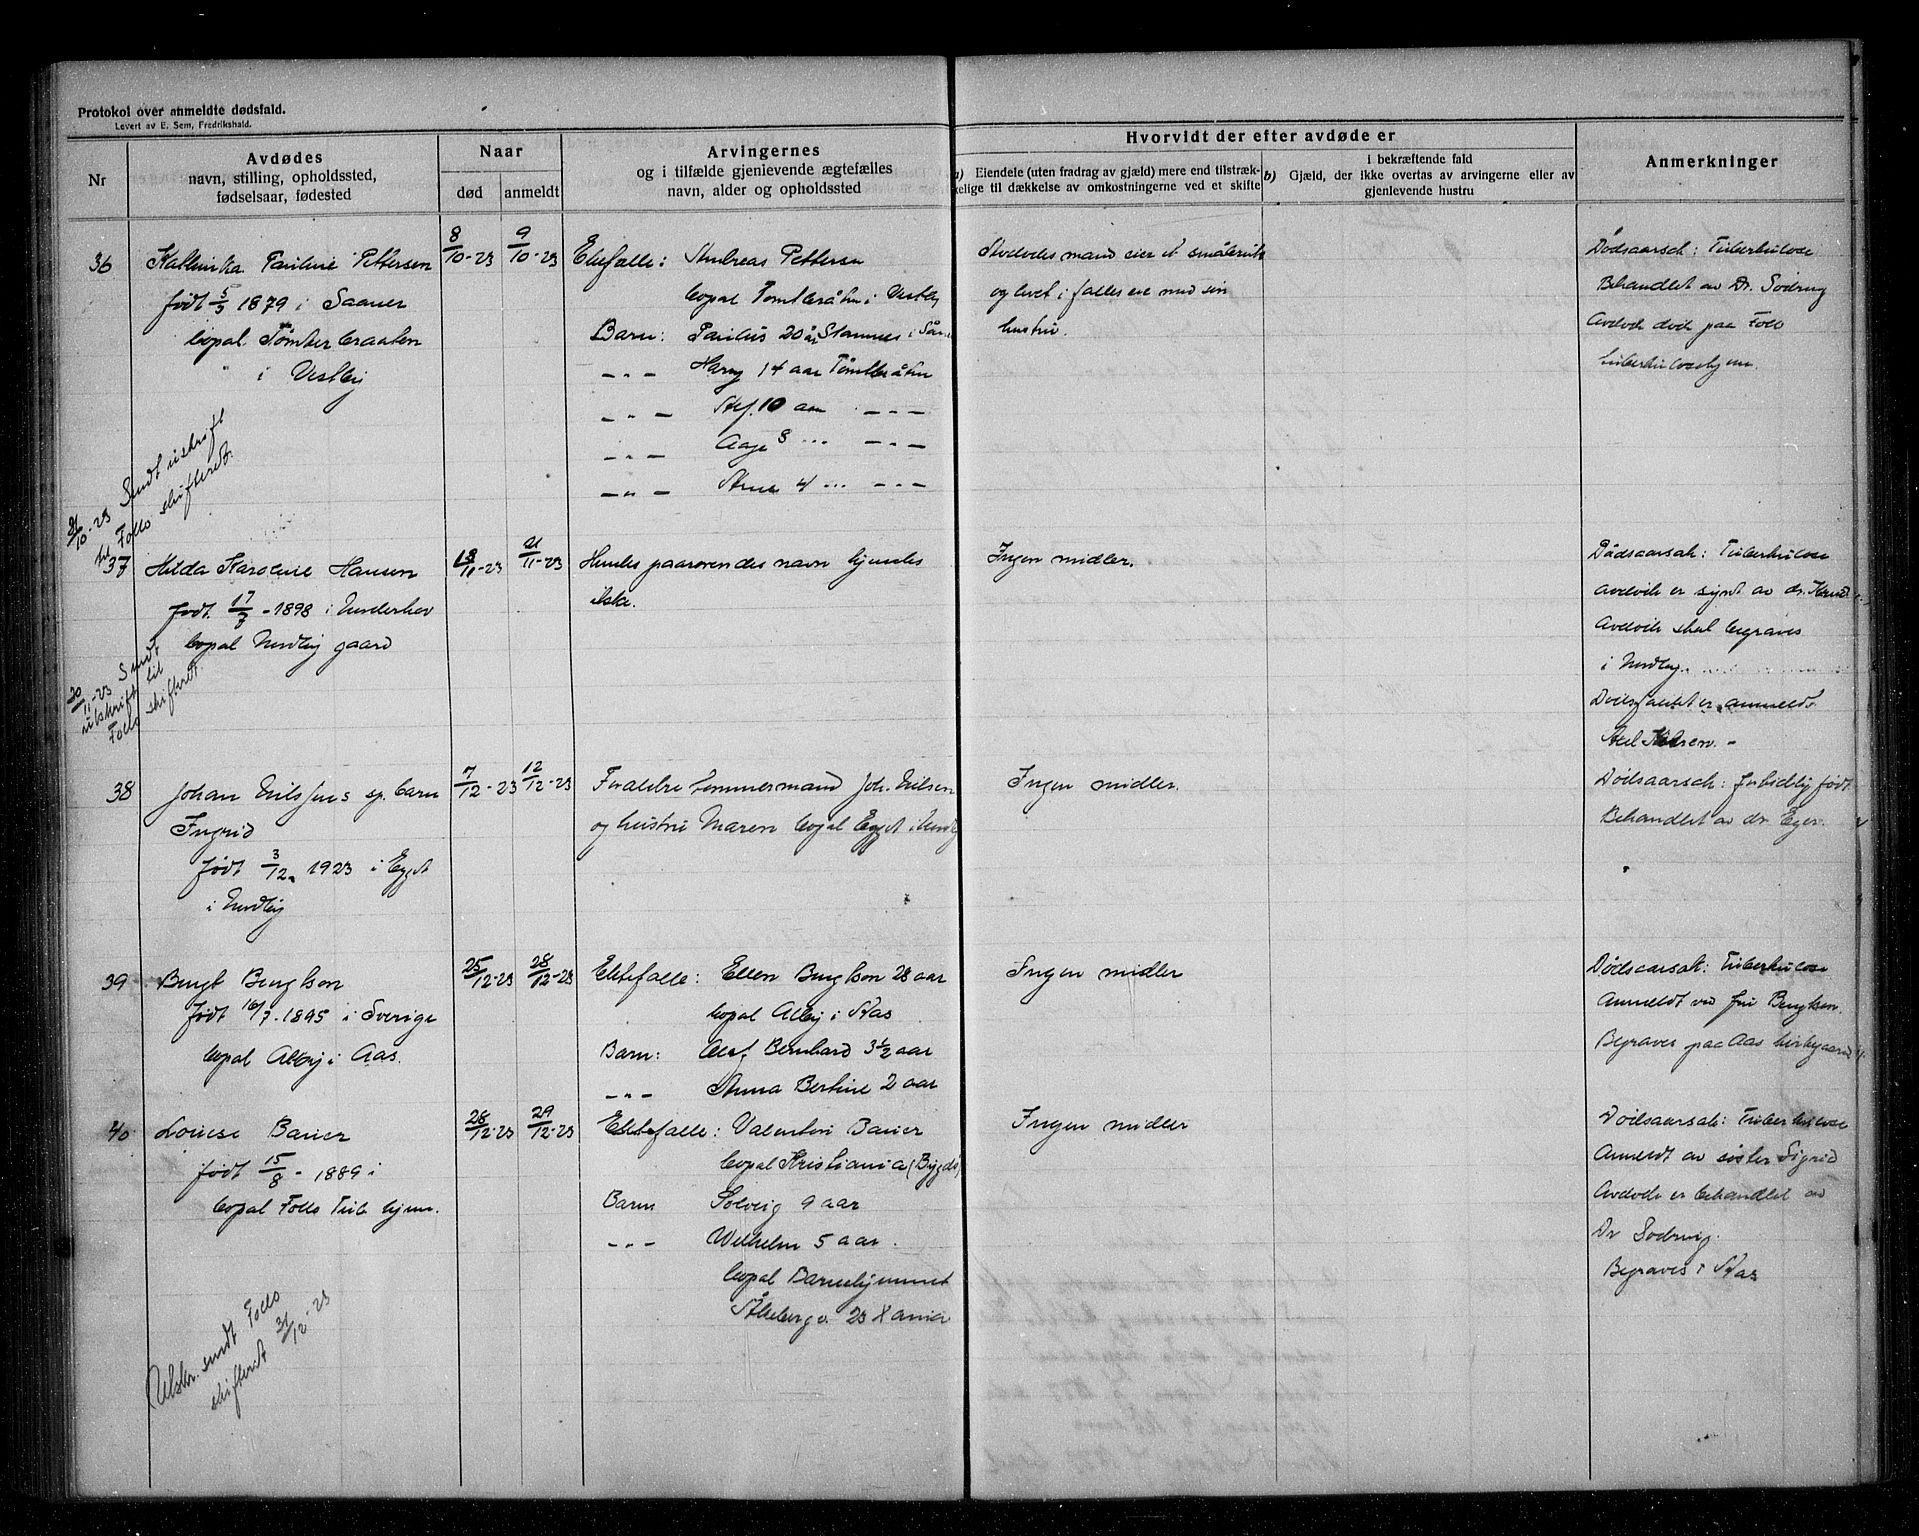 Protokol over anmeldte dødsfald.
Levert av E. Sem, Fredrikshald.
Nr
Avdødes
navn, stilling, opholdssted,
fødselsaar, fødested
Naar
død
anmeldt
Arvingernes
og i tilfælde gjenlevende ægtefælles
navn, alder og opholdssted
Hvorvidt der efter avdøde er
a) Eiendele (uten fradrag av gjæld) mere end tilstræk-
kelige til dækkelse av omkostningerne ved et skifte
i bekræftende fald
b) Gjæld, der ikke overtas av arvingerne eller av
gjenlevende hustru
Anmerkninger
36
Pauline Pettersen
født 5/3 1879 i Saaner
bopal Tømterbraaten
i Vestby
8/10-23
9/10-23
Ektefælle: Andreas Pettersen
bopal Tømterbråten i Vestby
Barn: Paulus 20 år Stamnes i
-"- Harry 14 aar Tømterbråten
-"- 10 aar -"-
-"- Aage 8 ... -"-
-"- Arne 4 ... -"-
Avdødes mand eier et småbruk
og levet i fælles eie med sin
hustru.
Dødsaarsak: Tuberkulose
Behandlet av Dr. Sodring
Avdøde døde paa Follo
tuberkulosehjem.
31/10-23 Sendt utskrift
til Follo skifteret.
37
Hilda Karoline Hansen
født 17/7-1898 i
bopal Nordby gaard
18/11-23
21/11-23
Hendes paarørendes navn kjendes
ikke.
Ingen midler.
Dødsaarsak: Tuberkulose
avdøde er synet av dr.
Avdøde skal begraves
i Nordby.
Dødsfaldet er anmeldt
30/11-23 Sendt
utskrift til
Follo skifteret.
38
Johan Nilsens sp. barn
Ingrid
født 3/12 1923 i Egget
i Nordby
7/12-23
12/12-23
Foraldre tømmermand Joh. Nilsen
og hustru Maren bopal Egget i Nordby
Ingen midler.
Dødsaarsak: fortidlig født
Behandlet av dr. Eger.
39
Bengt Bengtson
født 16/7-1895 i Sverige
bopal Alby i Aas.
25/12-23
28/12-23
Ektefælle: Ellen Bengtson 28 aar
bopal Alby i Aas
Barn: Olaf Bernhard 3 1/2 aar
-"- Anna Bertine 2 aar
Ingen midler
Dødsaarsak: Tuberkulose
Anmeldt ved fru Bengtson.
Begraves paa Aas kirkegaard
40
Louise Bauer
født 15/8-1889 i
bopal Follo Tub. hjem.
28/12-23
29/12-23
Ektefælle: Valentin Bauer
bopal Kristiania (Bygdø)
Barn Solveig 9 aar
-"- Wilhelm 5 aar.
bopal Barnehjemmet
Åkebergv. 23 Kania
Ingen midler
Dødsaarsak: Tuberkulose
Anmeldt av søster Sigrid
Avdøde er behandlet av
Dr Sodring.
Begraves i Aas
Utskr. sendt Follo
skifteret 31/12-23